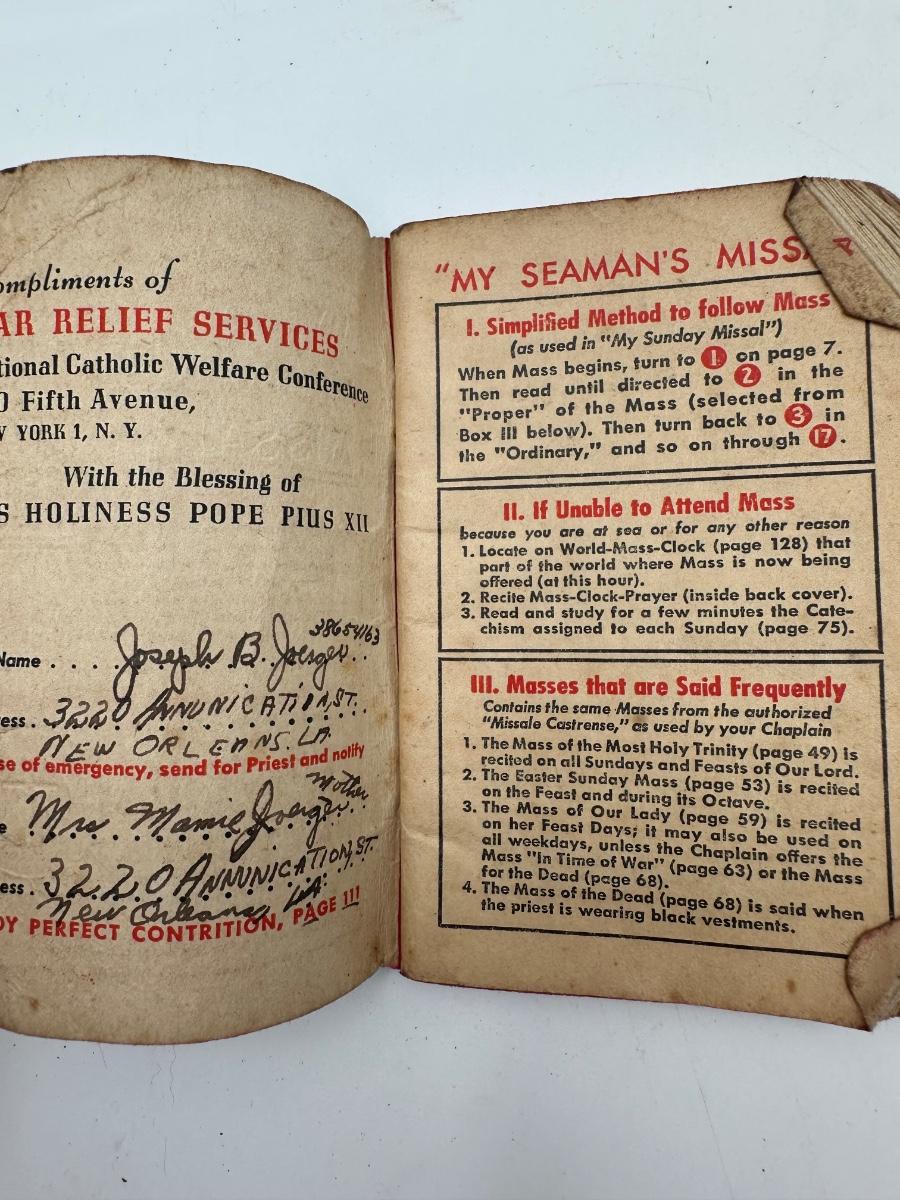 ompliments of
AR RELIEF SERVICES
tional Catholic Welfare Conference
0 Fifth Avenue,
W YORK 1, N. Y.
With the Blessing of
S HOLINESS POPE PIUS XII
38654163
Name . . . . Joseph B. Joerger . .
ess . 3220 ANNUNICATION, ST.
NEW ORLEANS. LA.
se of emergency, send for Priest and notify
Mother
e Mrs. Mamie Joerger
ess . 3220 ANNUNICATION, ST.
New Orleans, LA.
DY PERFECT CONTRITION, PAGE 111
"MY SEAMAN'S MISSA
I. Simplified Method to follow Mass
(as used in "My Sunday Missal")
When Mass begins, turn to 1 on page 7.
Then read until directed to 2 in the
"Proper" of the Mass (selected from
Box III below). Then turn back to 3 in
the "Ordinary," and so on through 17.
II. If Unable to Attend Mass
because you are at sea or for any other reason
1. Locate on World-Mass-Clock (page 128) that
part of the world where Mass is now being
offered (at this hour).
2. Recite Mass-Clock-Prayer (inside back cover).
3. Read and study for a few minutes the Cate-
chism assigned to each Sunday (page 75).
III. Masses that are Said Frequently
Contains the same Masses from the authorized
"Missale Castrense," as used by your Chaplain
1. The Mass of the Most Holy Trinity (page 49) is
recited on all Sundays and Feasts of Our Lord.
2. The Easter Sunday Mass (page 53) is recited
on the Feast and during its Octave.
3. The Mass of Our Lady (page 59) is recited
on her Feast Days; it may also be used on
all weekdays, unless the Chaplain offers the
Mass "In Time of War" (page 63) or the Mass
for the Dead (page 68).
4. The Mass of the Dead (page 68) is said when
the priest is wearing black vestments.